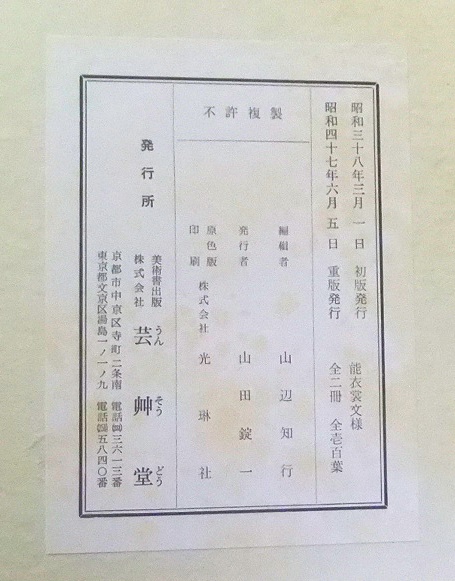 昭和三十八年三月一日 初版発行 能衣裳文様
昭和四十七年六月五日 重版発行 全二冊 全壱百葉
不許複製
編輯者 山辺知行
発行者 山田錠一
原色版印刷 株式会社 光琳社
発行所
美術書出版
株式会社 芸艸堂
うんそうどう
京都市中京区寺町二条南 電話 三六一三番
東京都文京区湯島一ノ一ノ九 電話 五八四〇番